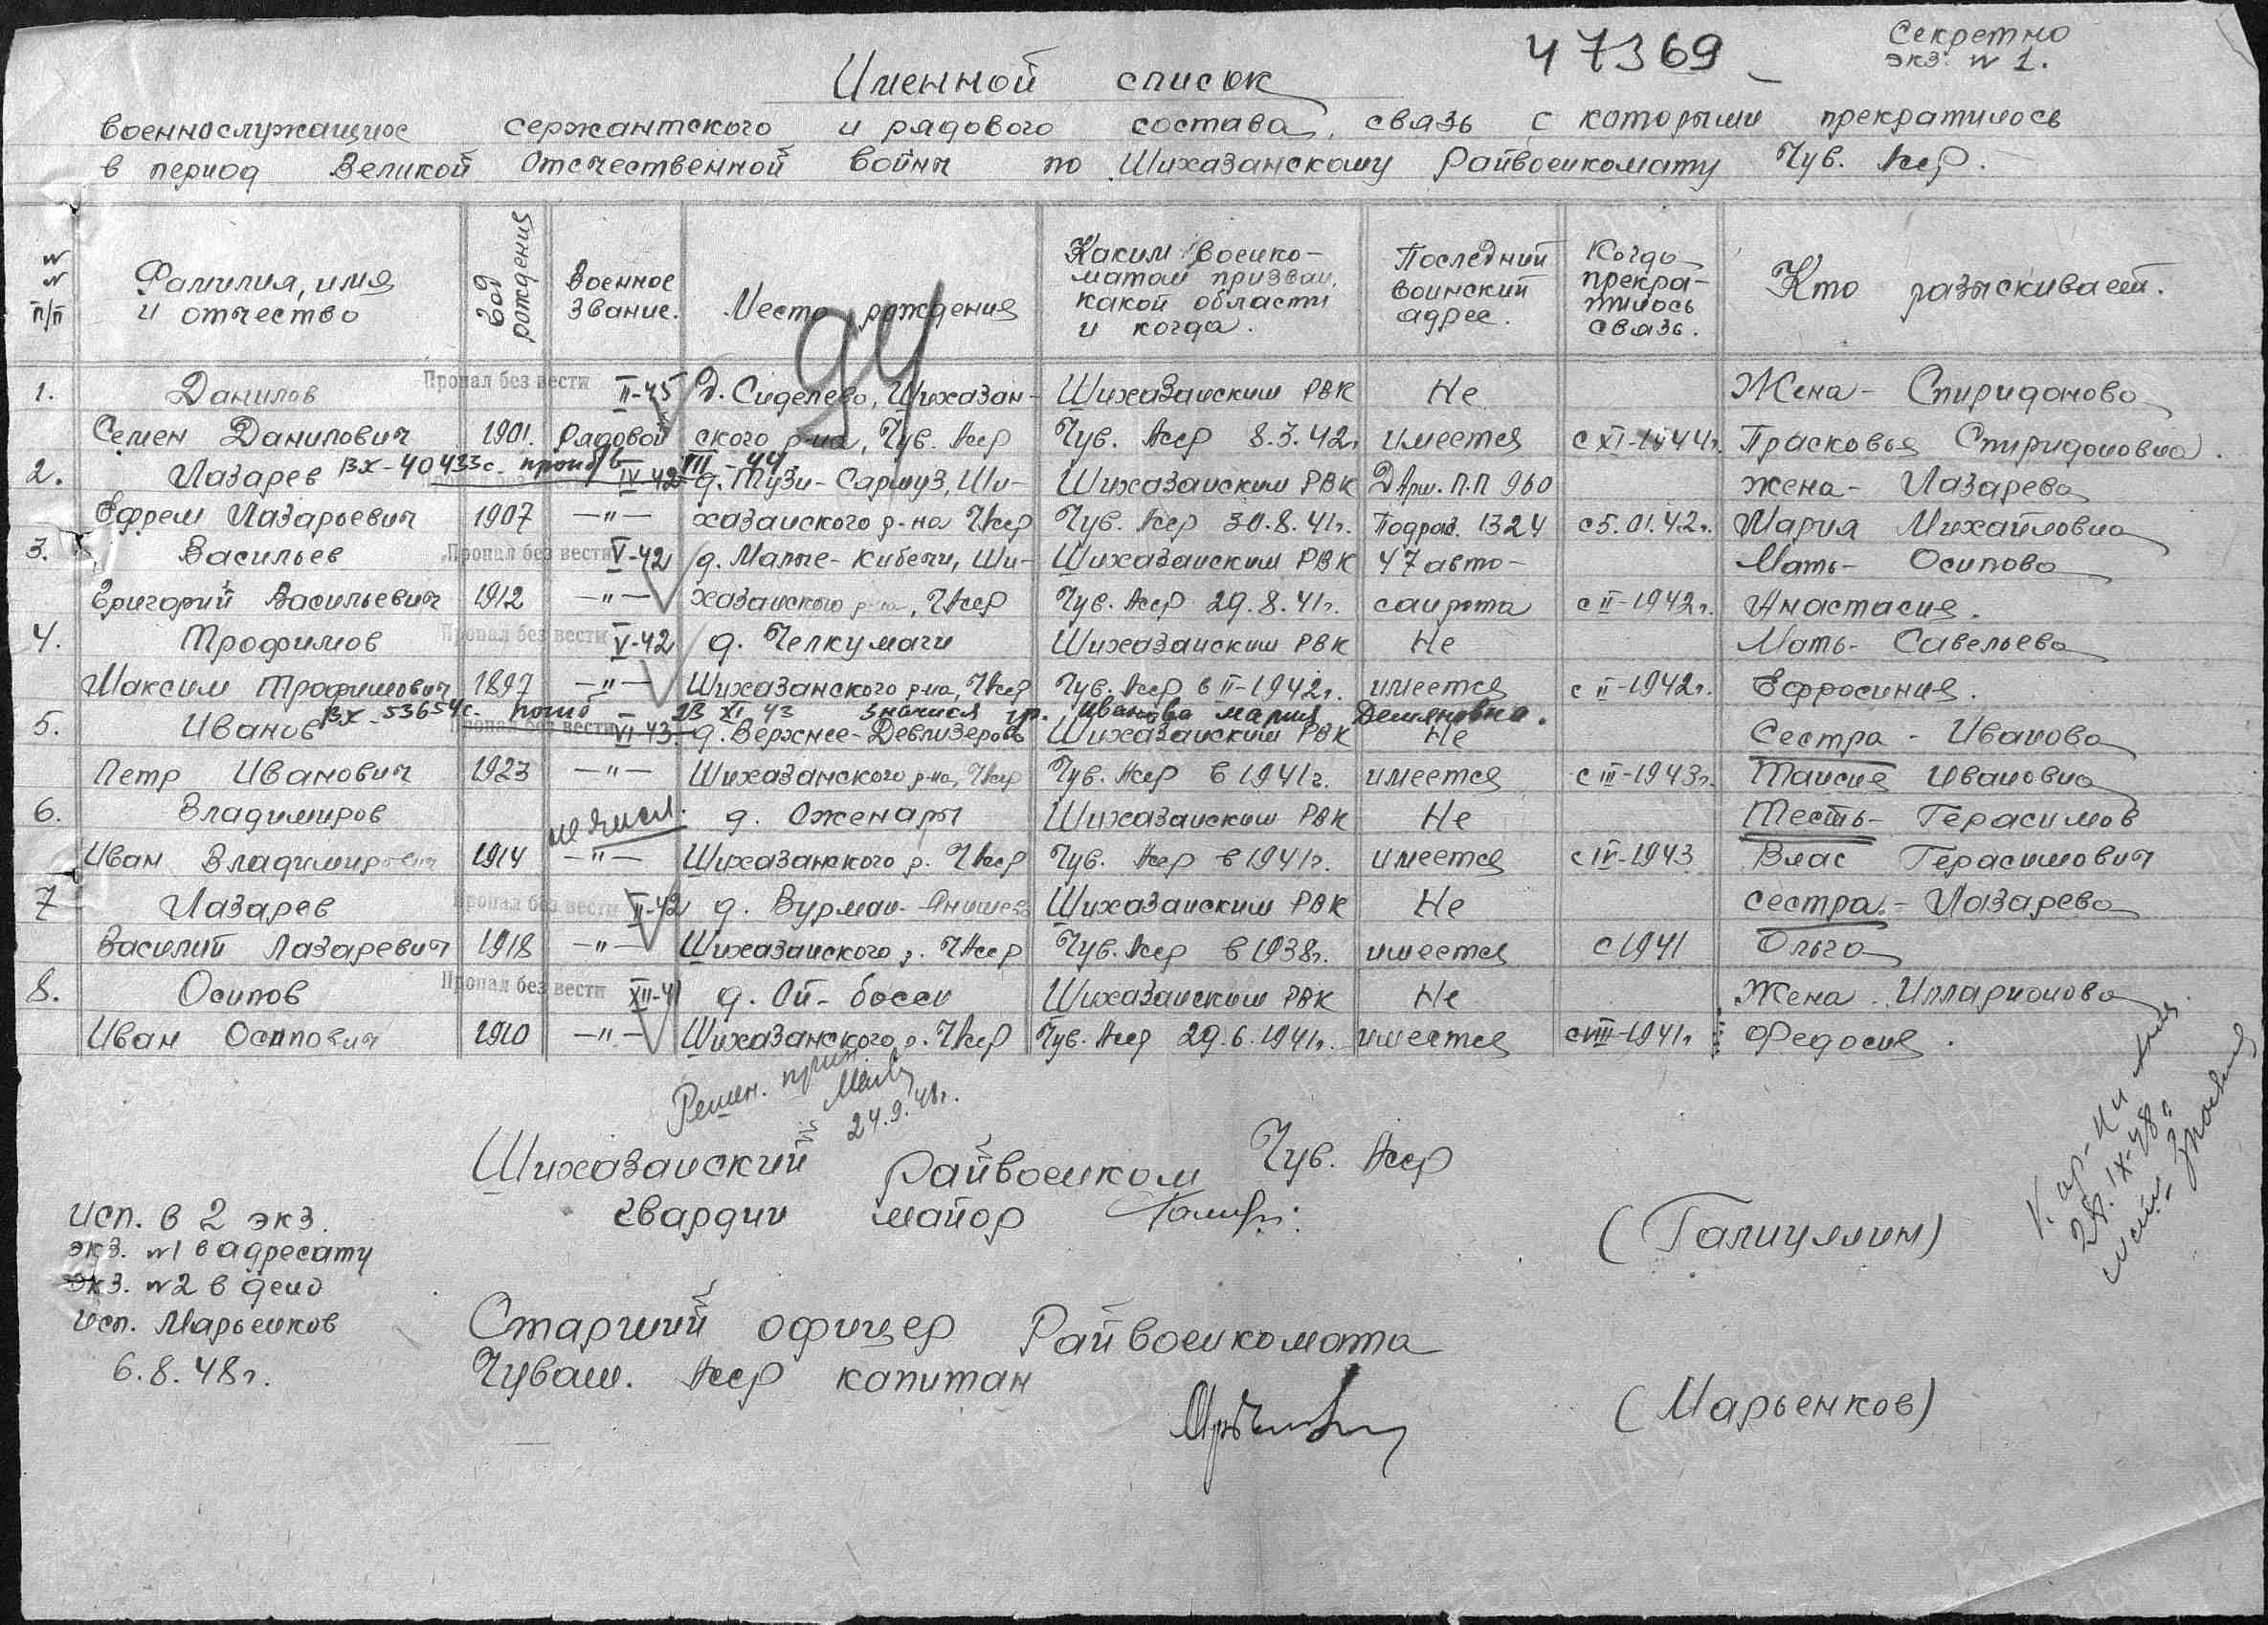 47369
Секретно
экз. № 1.
Именной список
военнослужащие сержантского и рядового состава, связь с которыми прекратилось
в период Великой Отечественной войны по Шихазанскому Райвоенкомату Чув. Асср.
№ № п/п
Фамилия, имя и отчество
Год рождения
Военное звание.
Место рождения
Каким военкоматом призван, какой области и когда.
Последний воинский адрес.
Когда прекратилось связь.
Кто разыскивает.
94
1. Данилов Пропал без вести II-45 д. Сиделево, Шихазан- Шихазанским РВК Не Жена - Спиридонова
Семен Данилович 1901. Рядовой ского р-на, Чув. Асср Чув. Асср 8.3.42г. имеется с XI-1944г. Прасковья Спиридоновна.
вх-40433с. погиб в III-44
2. Лазарев IV-42 д. Тузи-Сармуз, Ши- Шихазанским РВК Д Арм. П.П 960 жена - Лазарева
Ефрем Лазарьевич 1907 —"— хазанского р-на ЧАсср Чув. Асср 30.8.41г. Подраз. 1324 с 5.01.42г. Мария Михайловна
3. Васильев Пропал без вести V-42 д. Малые-Кибечи, Ши- Шихазанским РВК 47 авто- Мать - Осипова
Григорий Васильевич 1912 —"— хазанского р-на, ЧАсср Чув. Асср 29.8.41г. санрота с II-1942г. Анастасия.
4. Трофимов Пропал без вести V-42 д. Челкумаги Шихазанским РВК Не Мать - Савельева
Максим Трофимович 1897 —"— Шихазанского р-на, ЧАсср Чув. Асср в II-1942г. имеется с II-1942г. Ефросиния.
вх-53654с. погиб 23 XI 43 значися гр. Иванова Мария Демяновна.
5. Иванов Пропал без вести VI-43. д. Верхнее-Девлизерово Шихазанским РВК Не Сестра - Иванова
Петр Иванович 1923 —"— Шихазанского р-на, ЧАсср Чув. Асср в 1941г. имеется с III-1943г. Таисия Ивановна
6. Владимиров не числ. д. Оженары Шихазанским РВК Не Тесть - Герасимов
Иван Владимирович 1914 —"— Шихазанского р. ЧАсср Чув. Асср в 1941г. имеется с IV-1943 Влас Герасимович
7 Лазарев Пропал без вести II-42 д. Вурман- Шихазанским РВК Не сестра - Лазарева
Василий Лазаревич 1918 —"— Шихазанского р. ЧАсср Чув. Асср в 1938г. имеется с 1941 Ольга
8. Осипов Пропал без вести XII-41 д. Ой-босси Шихазанским РВК Не Жена Илларионова
Иван Осипович 1910 —"— Шихазанского р. ЧАсср Чув. Асср 29.6.1941г. имеется с VIII-1941г. Федосия.
24.9.48г.
Шихазанский Райвоенком Чув. Асср
гвардии майор (Галиуллин)
28.IX-48г
исп. в 2 экз.
экз. №1 в адресату
экз. №2 в дело
исп. Марьенков
6.8.48г.
Старший офицер Райвоенкомата
Чуваш. Асср капитан
(Марьенков)